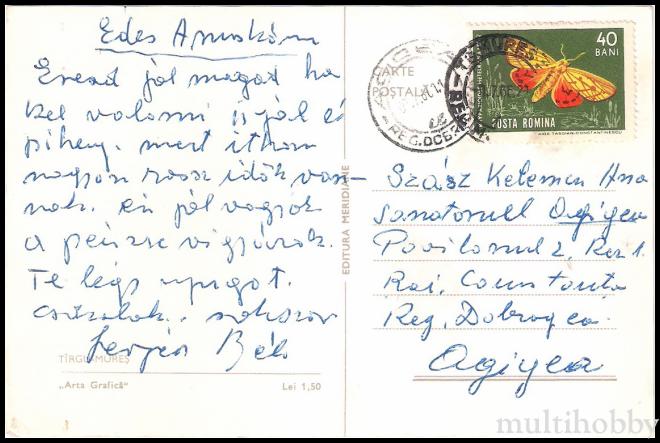 Edes Annuskám
Érezd jól magad ha
kel valami is jól és
pihenj. mert ithon
nagyon rossz idők van-
nak. én jól vagyok
a pénzre vigyázok.
Te légy nyugot.
csókolak. sokszor
Béla
TÎRGU-MUREȘ
„Arta Grafică”
Lei 1,50
EDITURA MERIDIANE
CARTE
POSTALĂ
REG. DOBR
TG. MUREȘ
40
BANI
POSTA ROMINA
AIDA TASGIAN-CONSTANTINESCU
Szász Kelemen Anna
Sanatoriull Agigea
Pavilonul 2, Rez 1.
Rai. Constanta
Reg. Dobrogea.
Agigea
multihobby